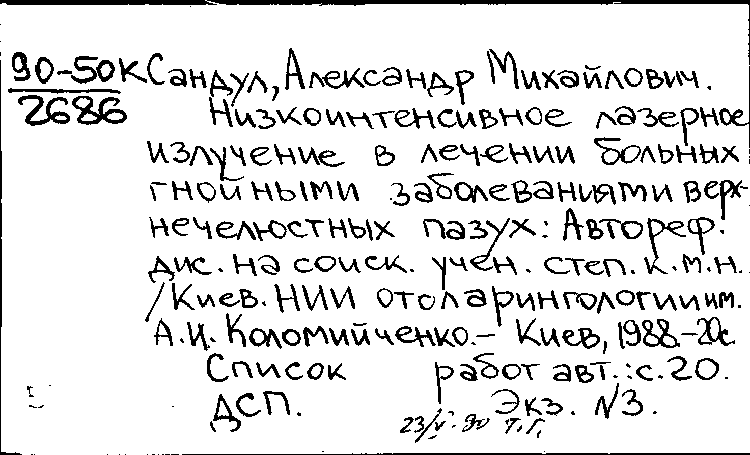 90-50К Сандул, Александр Михайлович.
2686 Низкоинтенсивное лазерное
излучение в лечении больных
гнойными заболеваниями верх-
нечелюстных пазух: Автореф.
дис. на соиск. учен. степ. к.м.н.
/Киев. НИИ отоларингологии им.
А.И. Коломийченко.- Киев, 1988.-20с.
Список работ авт.: с.20.
ДСП. Экз. N3.
23/V-90